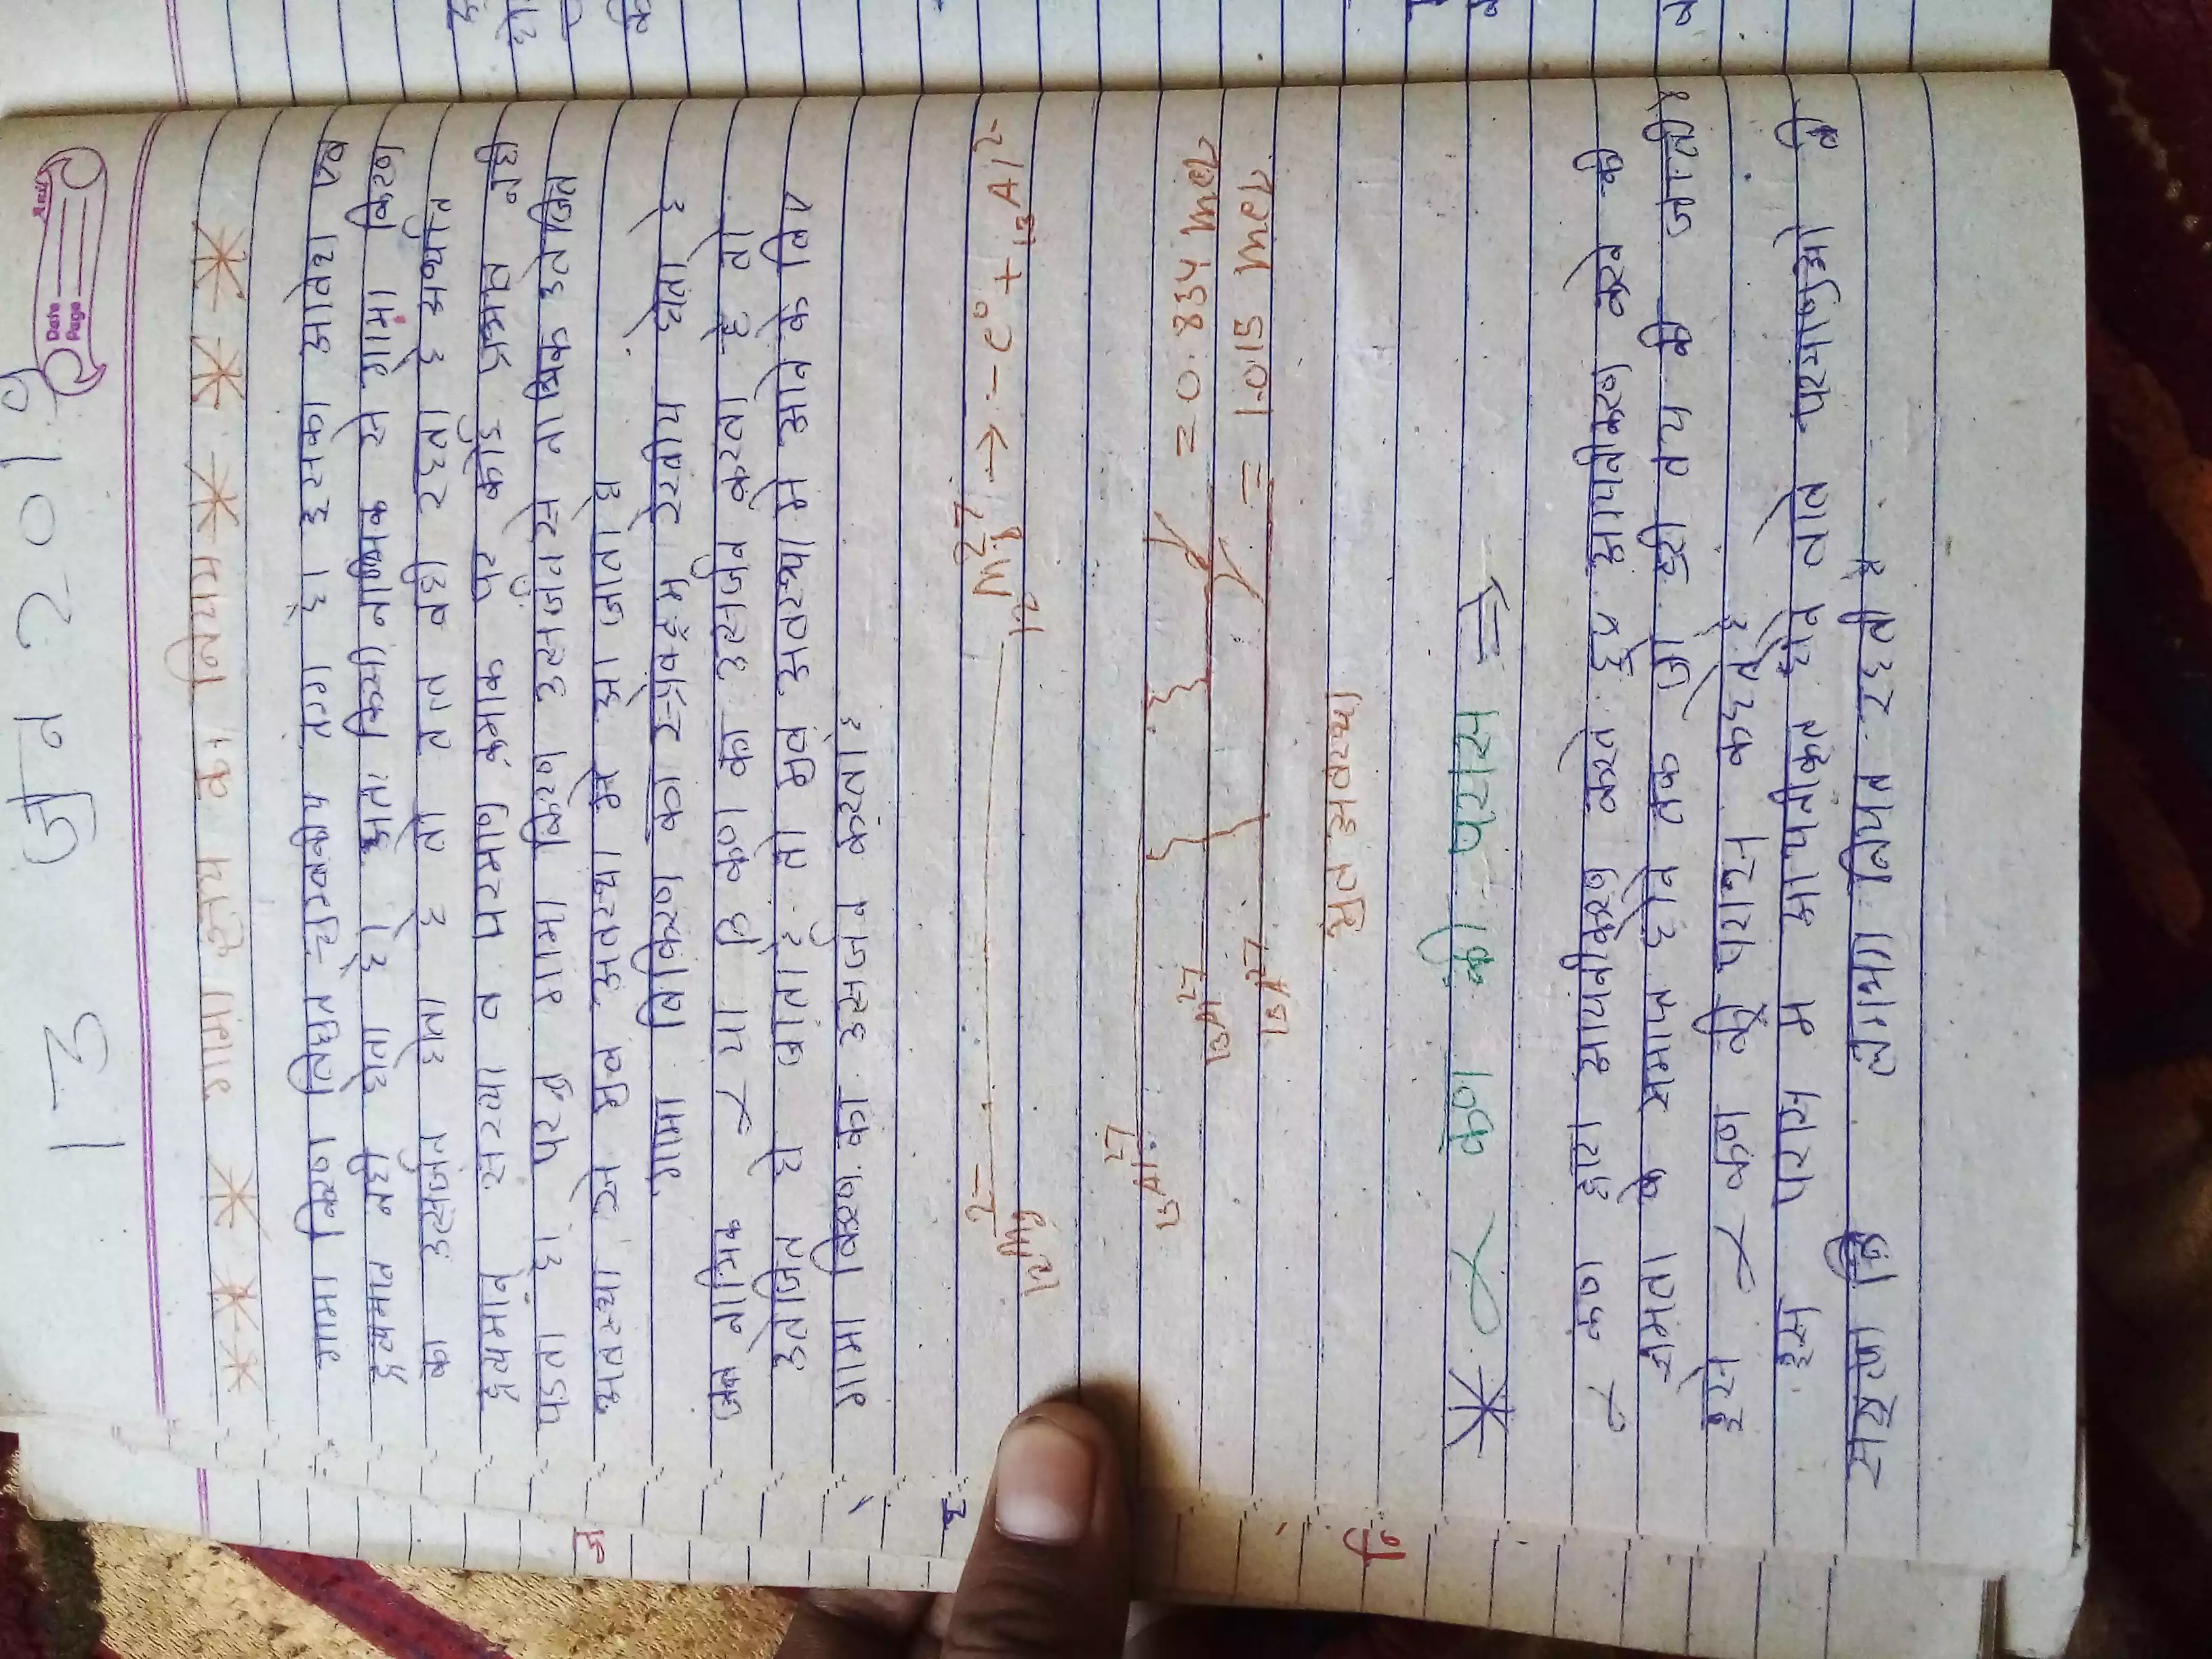 13 जुन 2019
Date
Page
गामा क्षय का नियम
गामा किरण विधुत चुम्बकीय तंरग है। इसका आवेश एव
द्रव्यमान नही होता है। अतः किसी नाभिक से गामा किरण
का उत्सर्जन होता है तो तत्त वही रहता है अर्थात
द्रव्यमान संख्या व परमाणु क्रमाक पर कोई प्रभाव नही
पडता है। परन्तु गामा किरण उत्सर्जन से नाभिक उतेजित
अवस्था से मुल अवस्था मे आ जाता है
गामा विकिरण का स्पेक्ट्रम रेखीय होता है
जब नाभिक α या β कण का उत्सर्जन करता है तो
उतेजित हो जाता है तो मुल अवस्था मे आने के लिए
गामा किरण का उत्सर्जन करता है
₁₂Mg²⁷ → -e⁰ + ₁₃Al²
₁₂Mg 2
₁₃Al²⁷
= 0.834 mev
₁₃Al²⁷
= 1.015 mev
₁₃Al²⁷
मुल अवस्था
* α कण की परास ⇒
α कण द्वारा आयनीकरण करते हुए आयनीकरण करने की
क्षमता के समाप्त होने तक जो दुरी तय की जाती है
इसे α कण की परास कहते है
इस परास मे आयनीकृत होने वाले परमाणुओ की
सख्या लगभग नियत रहती है